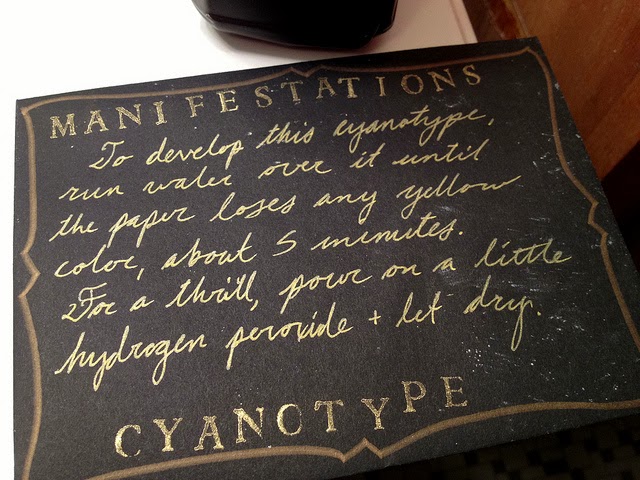 MANIFESTATIONS
To develop this cyanotype,
run water over it until
the paper loses any yellow
color, about 5 minutes.
For a thrill, pour on a little
hydrogen peroxide + let dry.
CYANOTYPE